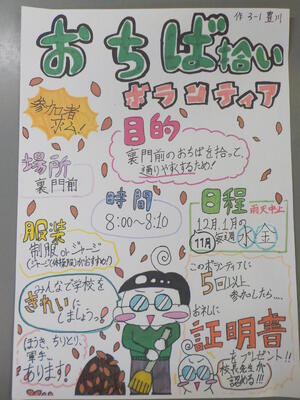 作 3-1 豊川
おちば拾い
ボランティア
参加者
求ム!
目的
裏門前のおちばを拾って、
通りやすくするため!
場所
裏門前
時間
8:00〜8:10
日程
雨天中止
12月、1月の
毎週
水 金
11月
服装
制服orジャージ
(ジャージ(体操服)がおすすめ!)
みんなで学校を
きれいに
しましょう。
ほうき、ちりとり、
軍手、
あります!
このボランティアに
5回以上
参加したら…
お礼に
証明書
をプレゼント!!
校長先生が
認める!!!